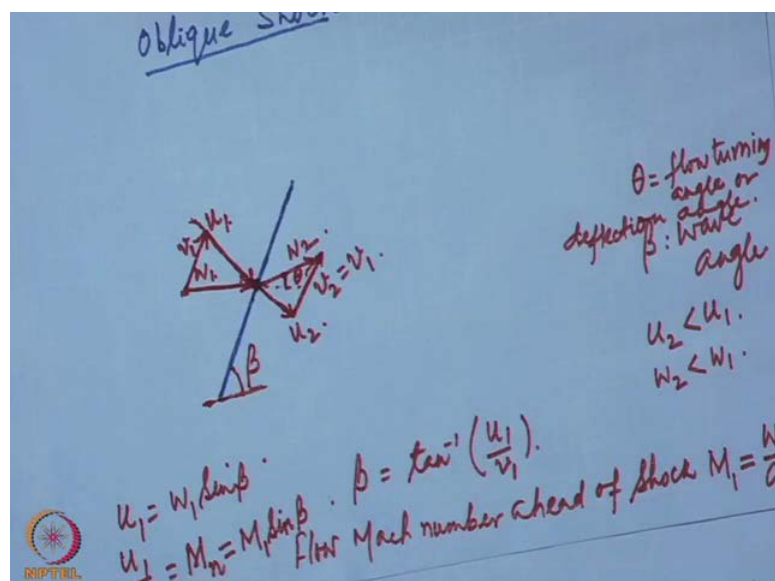 Oblique Shock
u₁
v₁
w₁
w₂
θ
v₂=v₁
u₂
β
θ = flow turning
angle or
deflection angle.
β: wave
angle
u₂ < u₁.
w₂ < w₁.
u₁ = w₁ sinβ. β = tan⁻¹(u₁/v₁).
u₁/ = Mₙ = M₁ sinβ. Flow Mach number ahead of shock M₁ = w/
NPTEL